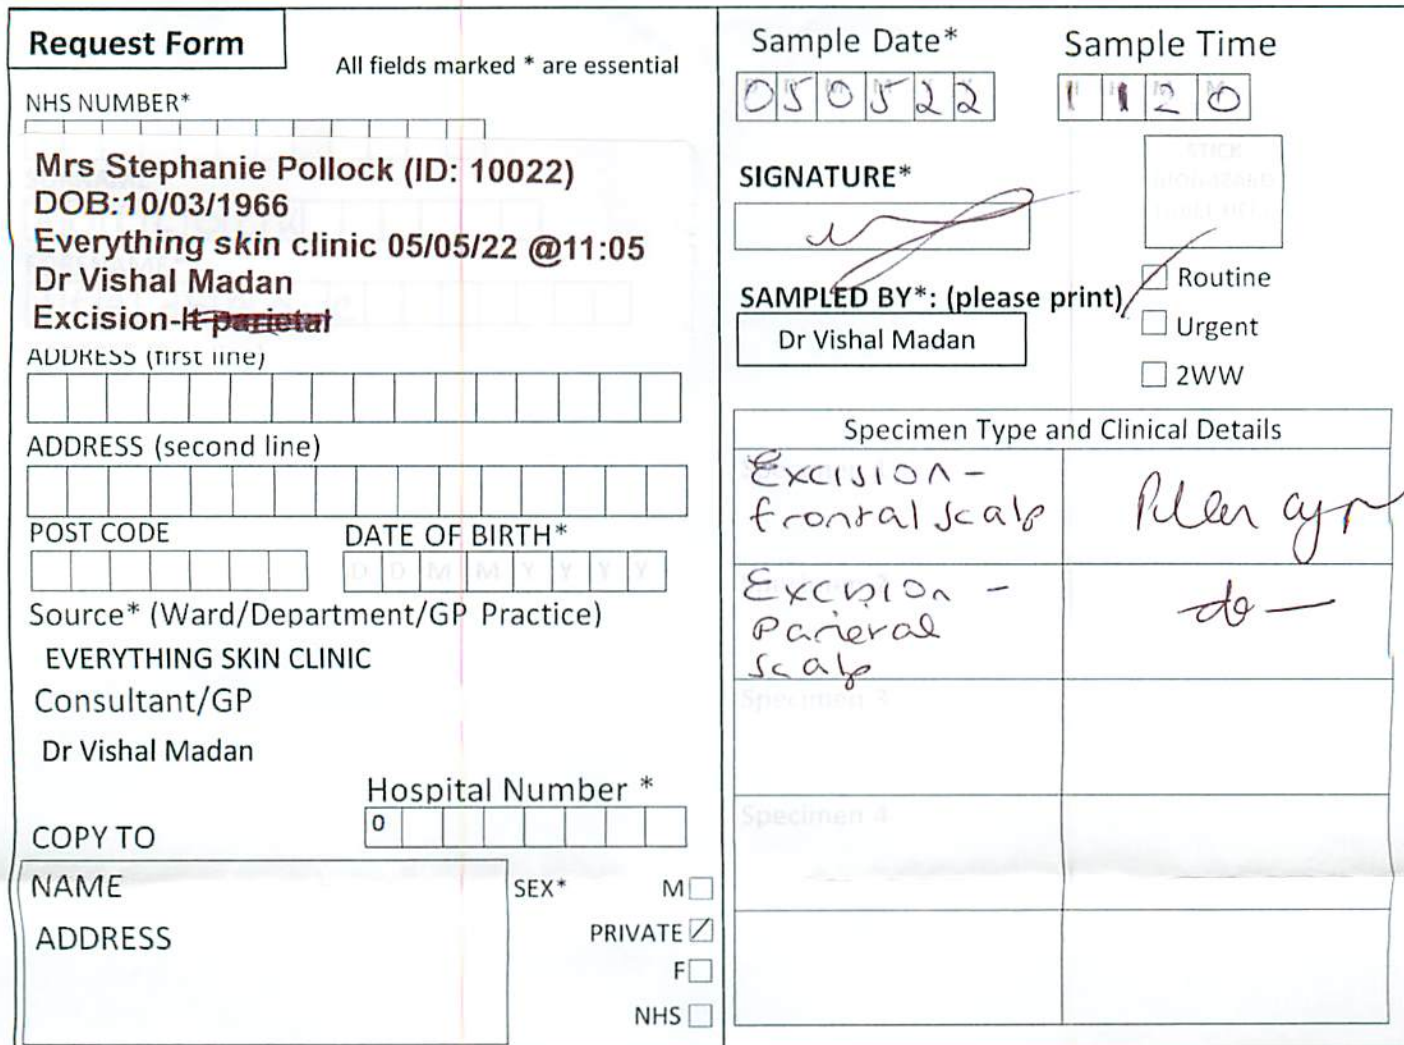 Request Form
All fields marked * are essential
NHS NUMBER*
Mrs Stephanie Pollock (ID: 10022)
DOB:10/03/1966
Everything skin clinic 05/05/22 @11:05
Dr Vishal Madan
Excision-lt parietal
ADDRESS (first line)
ADDRESS (second line)
POST CODE
DATE OF BIRTH*
D D M M Y Y Y Y
Source* (Ward/Department/GP Practice)
EVERYTHING SKIN CLINIC
Consultant/GP
Dr Vishal Madan
Hospital Number *
0
COPY TO
NAME
ADDRESS
SEX*
M
PRIVATE
F
NHS
Sample Date*
050522
Sample Time
1120
SIGNATURE*
STICK
LABEL HERE
SAMPLED BY*: (please print)
Dr Vishal Madan
Routine
Urgent
2WW
Specimen Type and Clinical Details
Excision -
frontal scalp
Pilar cyst
Excision -
Parietal
scalp
do
Specimen 3
Specimen 4